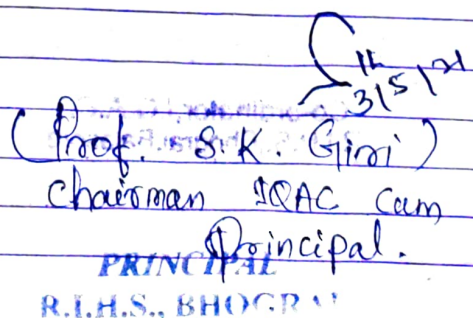 3/5/21
(Prof. S.K. Giri)
Chairman IQAC Cum
Principal.
PRINCIPAL
R.I.H.S., BHOGRAI